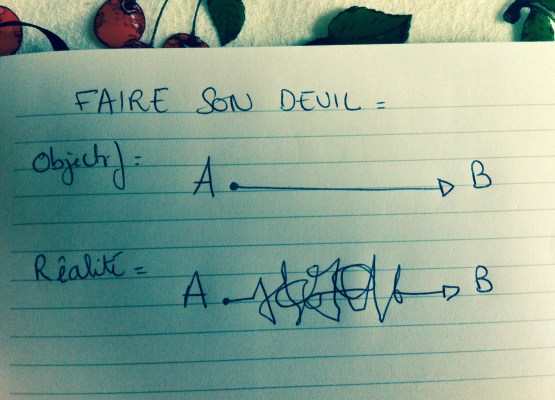 FAIRE SON DEUIL =
Objectif :
A B
Réalité =
A B